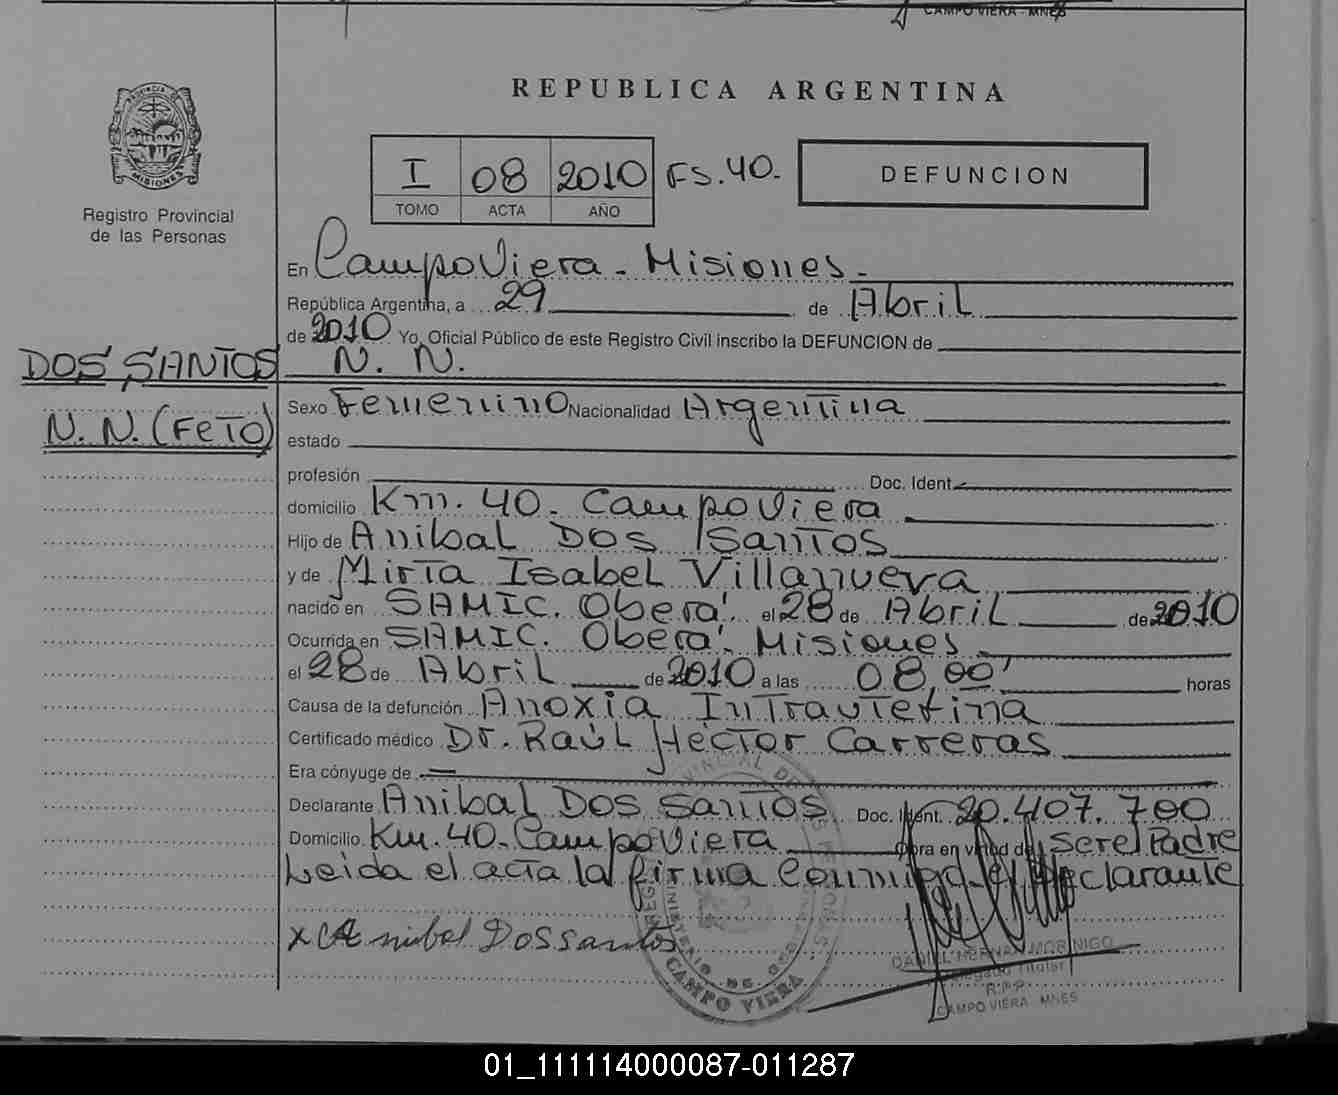 CAMPO VIERA - MNES
REPUBLICA ARGENTINA
PROVINCIA DE MISIONES
Registro Provincial
de las Personas
I 08 2010 FS. 40.
TOMO ACTA AÑO
DEFUNCION
En Campo Viera - Misiones -
República Argentina, a 29 de Abril
de 2010 Yo, Oficial Público de este Registro Civil inscribo la DEFUNCION de
DOS SANTOS N. N.
N. N. (FeTO)
Sexo Femenino Nacionalidad Argentina
estado
profesión Doc. Ident.
domicilio Km. 40. Campo Viera
Hijo de Anibal Dos Santos
y de Mirta Isabel Villanueva
nacido en SAMIC. Oberá. el 28 de Abril de 2010
Ocurrida en SAMIC. Oberá. Misiones
el 28 de Abril de 2010 a las 08,00' horas
Causa de la defunción Anoxia Intrauterina
Certificado médico Dr. Raúl Héctor Carreras
Era cónyuge de
Declarante Anibal Dos Santos Doc. Ident. 20.407.700
Domicilio Km. 40. Campo Viera Obra en virtud de Ser el Padre
Leida el acta la firma Conmigo el Declarante
x Anibal Dossantos
CAMPO VIERA
DANIEL HERNAN MORINIGO
Delegado Titular
R.P.P.
CAMPO VIERA - MNES
01_111114000087-011287